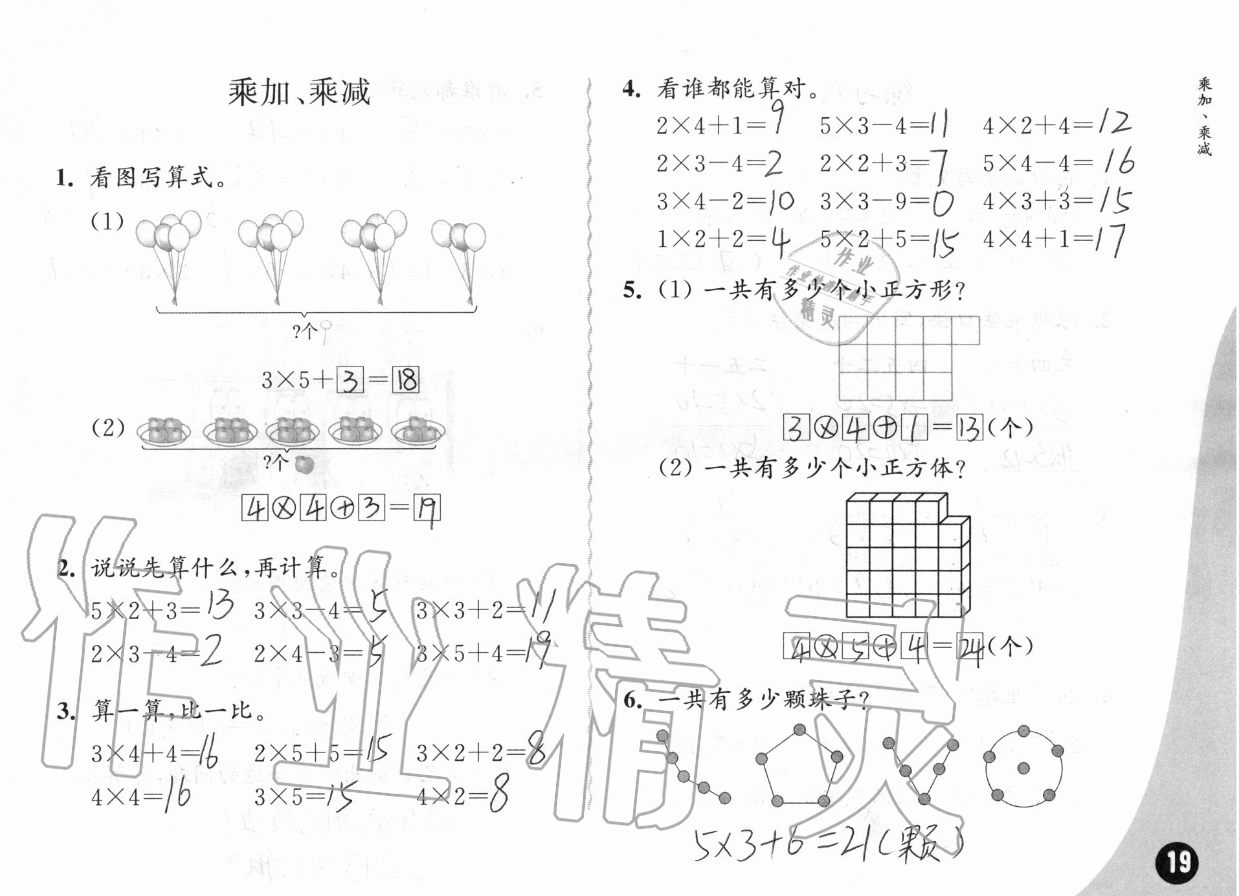 乘加、乘减
1. 看图写算式。
(1)
?个
3×5+3=18
(2)
?个
4×4+3=19
2. 说说先算什么,再计算。
5×2+3=13 3×3-4=5 3×3+2=11
2×3-4=2 2×4-3=5 3×5+4=19
3. 算一算,比一比。
3×4+4=16 2×5+5=15 3×2+2=8
4×4=16 3×5=15 4×2=8
4. 看谁都能算对。
2×4+1=9 5×3-4=11 4×2+4=12
2×3-4=2 2×2+3=7 5×4-4=16
3×4-2=10 3×3-9=0 4×3+3=15
1×2+2=4 5×2+5=15 4×4+1=17
5. (1) 一共有多少个小正方形?
3×4+1=13(个)
(2) 一共有多少个小正方体?
4×5+4=24(个)
6. 一共有多少颗珠子?
5×3+6=21(颗)
乘加、乘减
19
作业
精灵
作业精灵